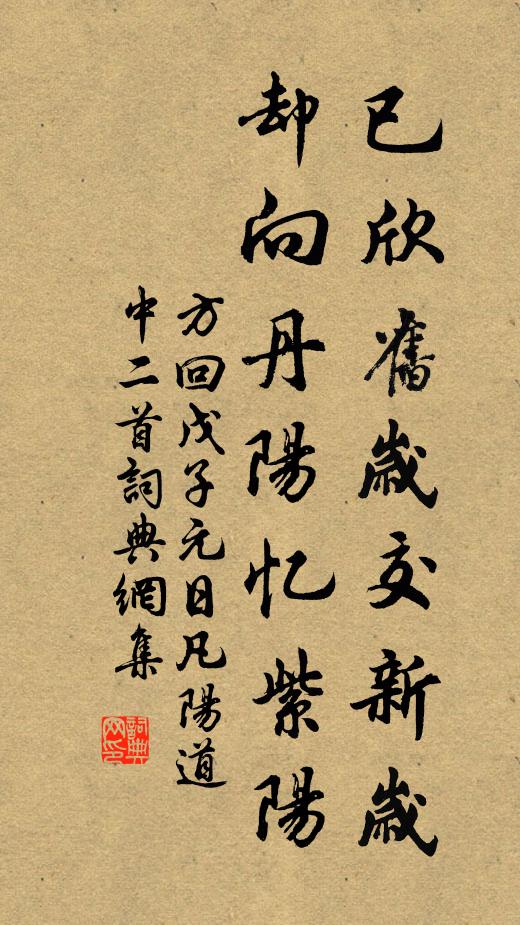 已欣舊歲交新歲
却向丹陽忆紫陽
方回戊子元日凡陽道
中二首詞典網集
詞典网印